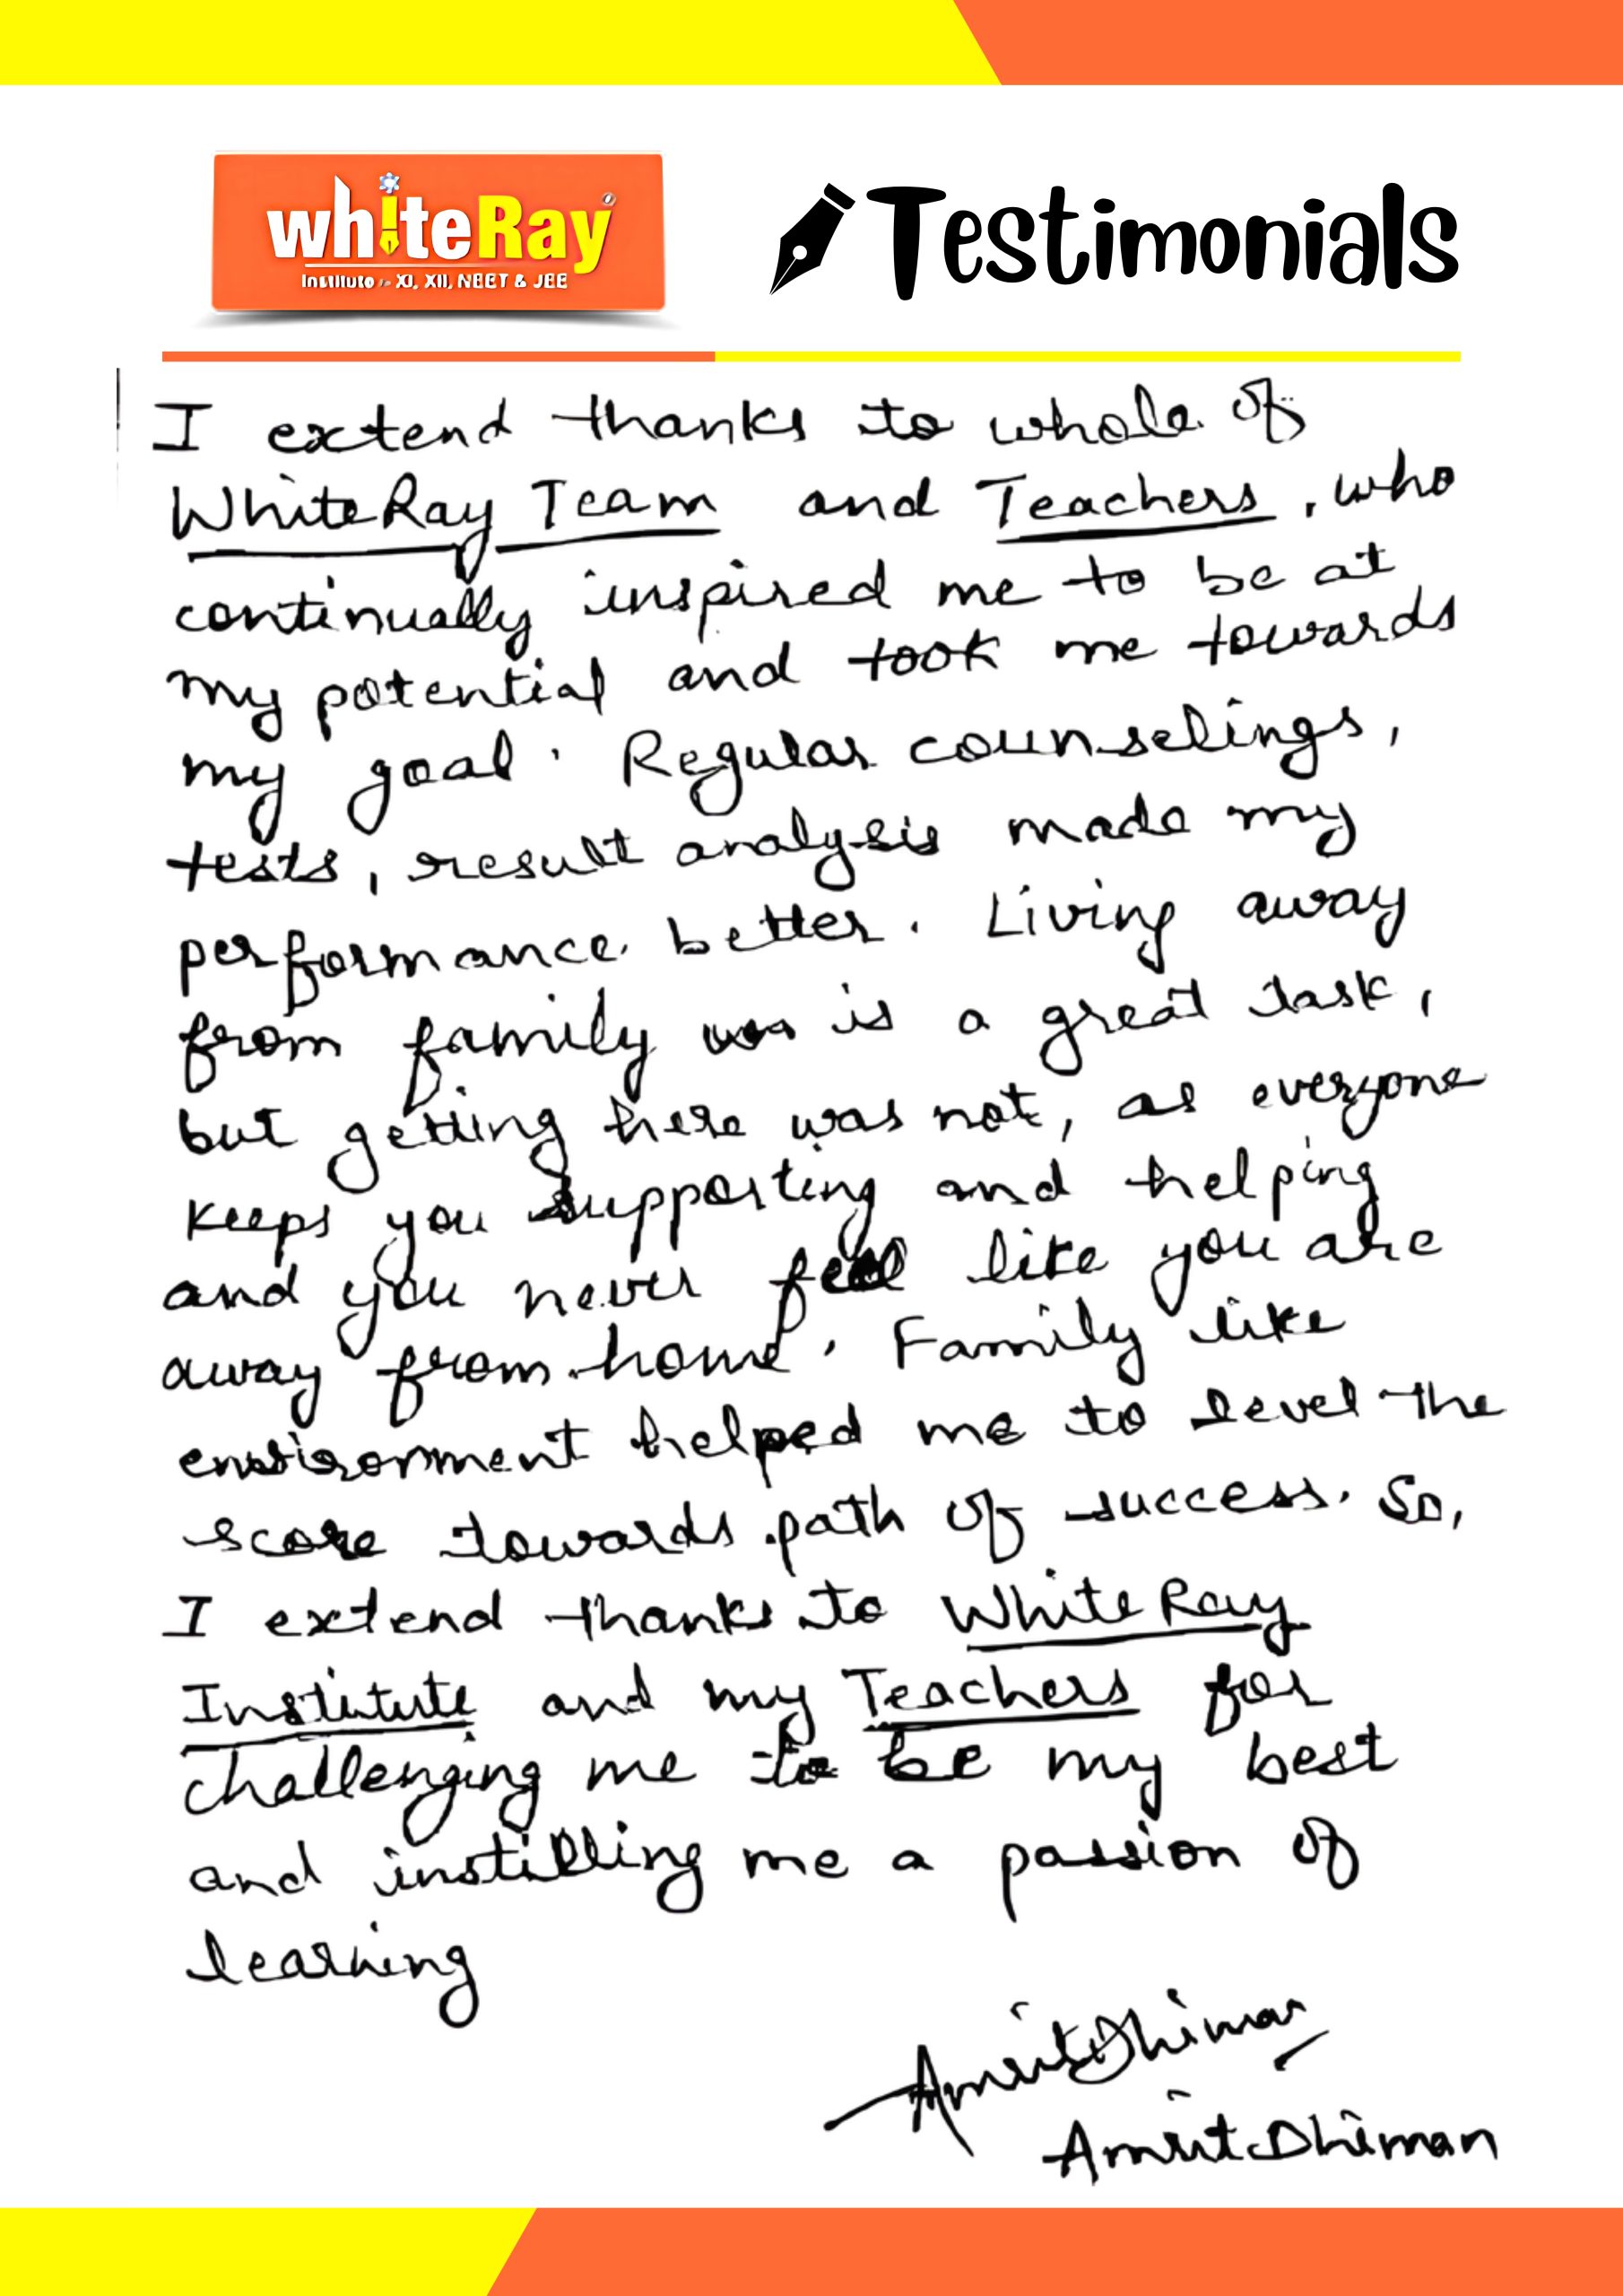 whiteRay
Institute :- XI, XII, NEET & JEE
Testimonials
I extend thanks to whole of
WhiteRay Team and Teachers, who
continually inspired me to be at
my potential and took me towards
my goal. Regular counselings,
tests, result analysis made my
performance better. Living away
from family is a great task,
but getting here was not, as everyone
keeps you supporting and helping
and you never feel like you are
away from home. Family like
environment helped me to level the
score towards path of success. So,
I extend thanks to WhiteRay
Institute and my Teachers for
challenging me to be my best
and instilling me a passion of
learning
Amrit Dhiman
Amrit Dhiman